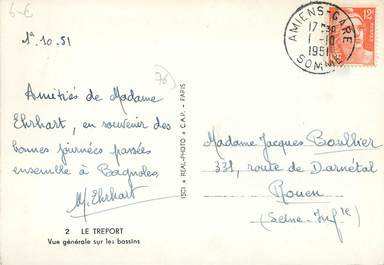 6-€
1ª.10.51
76
Amitiés de Madame
Ehrhart, en souvenir des
bonnes journées passées
ensemble à Bagnoles
M. Ehrhart
2 LE TREPORT
Vue générale sur les bassins
1501 ● REAL-PHOTO ● C.A.P. - PARIS
AMIENS-GARE
1-10
1951
SOMME
12F
POSTES
Madame Jacques Boullier
331, route de Darnétal
Rouen
(Seine-Infre)